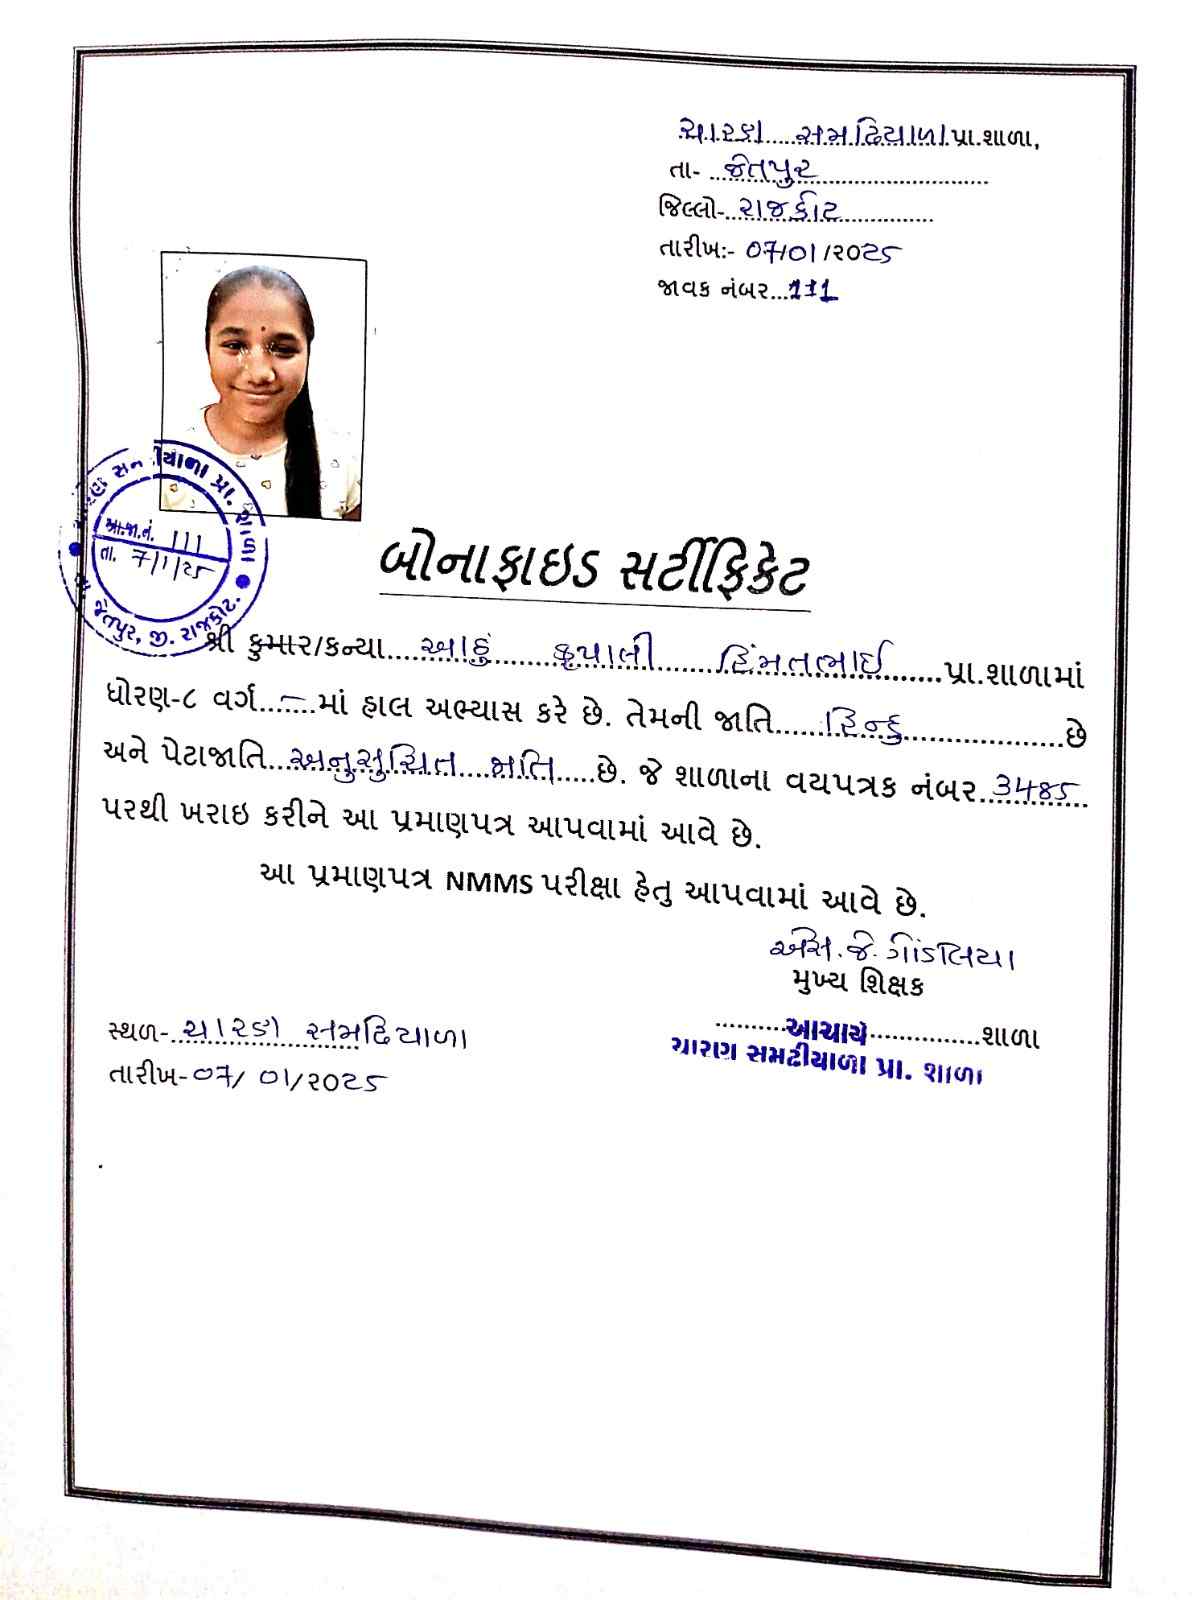 ચારણ સમઢિયાળા પ્રા.શાળા,
તા- જેતપુર
જિલ્લો- રાજકોટ
તારીખ:- 07/01/૨૦25
જાવક નંબર...111
સમઢીયાળા પ્રા. શાળા
આ.જા.નં. 111
તા. 7/1/25
જેતપુર, જી. રાજકોટ.
બોનાફાઇડ સર્ટીફિકેટ
શ્રી કુમાર/કન્યા... કૃપાલી હિંમતભાઈ...પ્રા.શાળામાં
ધોરણ-૮ વર્ગ...–...માં હાલ અભ્યાસ કરે છે. તેમની જાતિ...હિન્દુ...છે
અને પેટાજાતિ...અનુસુચિત જાતિ...છે. જે શાળાના વયપત્રક નંબર 3485
પરથી ખરાઇ કરીને આ પ્રમાણપત્ર આપવામાં આવે છે.
આ પ્રમાણપત્ર NMMS પરીક્ષા હેતુ આપવામાં આવે છે.
એસ. જે. ગોંડલિયા
મુખ્ય શિક્ષક
સ્થળ- ચારણ સમઢિયાળા
...આચાર્ય...શાળા
ચારણ સમઢીયાળા પ્રા. શાળા
તારીખ-07/01/૨૦25